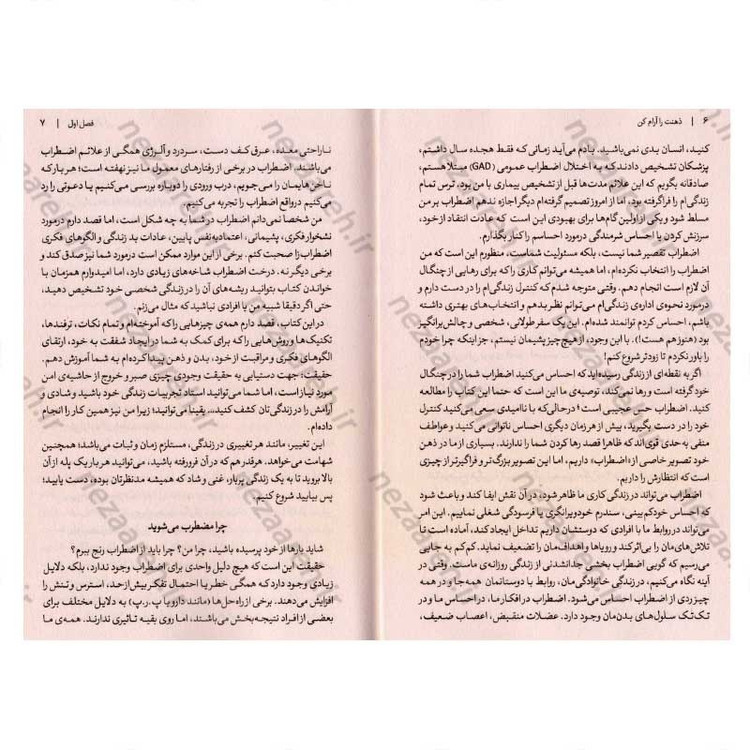 ۶ | ذهنت را آرام کن
کنید، انسان بدی نمی‌باشید. یادم می‌آید زمانی که فقط هجده سال داشتم،
پزشکان تشخیص دادند که به اختلال اضطراب عمومی (GAD) مبتلا هستم،
صادقانه بگویم که این علائم مدت‌ها قبل از تشخیص بیماری با من بود. ترس تمام
زندگی‌ام را فرا گرفته بود، اما از امروز تصمیم گرفته‌ام دیگر اجازه ندهم اضطراب بر من
مسلط شود و یکی از اولین گام‌ها برای بهبودی این است که عادت انتقاد از خود،
سرزنش کردن یا احساس شرمندگی در مورد احساسم را کنار بگذارم.
اضطراب تقصیر شما نیست، بلکه مسئولیت شماست، منظورم این است که من
اضطراب را انتخاب نکرده‌ام، اما همیشه می‌توانم کاری را که برای رهایی از چنگال
آن لازم است انجام دهم. وقتی متوجه شدم که کنترل زندگی‌ام را در دست دارم و
در مورد نحوه‌ی اداره‌ی زندگی‌ام می‌توانم نظر بدهم و انتخاب‌های بهتری داشته
باشم، احساس کردم توانمند شده‌ام. این یک سفر طولانی، شخصی و چالش‌برانگیز
بود (هنوز هم هست!). با این وجود، از هیچ چیز پشیمان نیستم، جز اینکه چرا خودم
را باور نکردم تا زودتر شروع کنم!
اگر به نقطه‌ای از زندگی رسیده‌اید که احساس می‌کنید اضطراب شما را در چنگال
خود گرفته است و رها نمی‌کند، توصیه‌ی ما این است که حتما این کتاب را مطالعه
کنید. اضطراب حس عجیبی است! در حالی که با ناامیدی سعی می‌کنید کنترل
خود را در دست بگیرید، بیش از هر زمان دیگری احساس ناتوانی می‌کنید و عواطف
منفی به حدی قوی‌اند که ظاهرا قصد رها کردن شما را ندارند. بسیاری از ما در ذهن
خود تصویر خاصی از «اضطراب» داریم، اما این تصویر بزرگ‌تر و فراگیرتر از چیزی
است که انتظارش را داریم.
اضطراب می‌تواند در زندگی کاری ما ظاهر شود، در آن نقش ایفا کند و باعث شود
که احساس خودکم‌بینی، سندرم خودویرانگری یا فرسودگی شغلی نماییم. این امر
می‌تواند در روابط ما با افرادی که دوستشان داریم تداخل ایجاد کند، آماده است تا
تلاش‌های مان را بی‌اثر کند و رویاها و اهداف‌مان را تضعیف نماید. کم‌کم به جایی
می‌رسیم که گویی اضطراب بخشی جدانشدنی از زندگی روزانه‌ی ماست. وقتی در
آینه نگاه می‌کنیم، در زندگی خانوادگی‌مان، روابط با دوستانمان همه‌جا و در همه
چیز ردی از اضطراب احساس می‌شود. اضطراب در افکار ما، در احساس ما و در
تک‌تک سلول‌های بدن‌مان وجود دارد. عضلات منقبض، اعصاب ضعیف،
فصل اول | ۷
ناراحتی معده، عرق کف دست، سردرد و آلرژی همگی از علائم اضطراب
می‌باشند. اضطراب در برخی از رفتارهای معمول ما نیز نهفته است؛ هر بار که
ناخن‌هایمان را می‌جویم، درب ورودی را دوباره بررسی می‌کنیم یا دعوتی را رد
می‌کنیم در واقع اضطراب را تجربه می‌کنیم.
من شخصا نمی‌دانم اضطراب در شما به چه شکل است، اما قصد دارم در مورد
نشخوار فکری، پشیمانی، اعتماد به نفس پایین، عادات بد زندگی و الگوهای فکری
اضطراب‌زا صحبت کنم. برخی از این موارد ممکن است در مورد شما نیز صدق کند و
برخی دیگر نه. درخت اضطراب شاخه‌های زیادی دارد، اما امیدوارم همزمان با
خواندن کتاب بتوانید ریشه‌های آن را در زندگی شخصی خود تشخیص دهید،
حتی اگر دقیقا شبیه من یا افرادی نباشید که مثال می‌زنم.
در این کتاب، قصد دارم همه‌ی چیزهایی را که آموخته‌ام و تمام نکات، ترفندها،
تکنیک‌ها و روش‌هایی را که برای کمک به شما در ایجاد شفقت به خود، ارتقای
الگوهای فکری و مراقبت از خود، بدن و ذهن پیدا کرده‌ام به شما آموزش دهم.
حقیقت؛ جهت دستیابی به حقیقت وجودی چیزی صبر و خروج از حاشیه‌ی امن
مورد نیاز است، اما شما می‌توانید استاد تجربیات زندگی خود باشید و شادی و
آرامش را در زندگی‌تان کشف کنید... یقینا می‌توانید؛ زیرا من نیز همین کار را انجام
داده‌ام.
این تغییر، مانند هر تغییری در زندگی، مستلزم زمان و ثبات می‌باشد؛ همچنین
شهامت می‌خواهد. هر قدر هم که در آن فرو رفته باشید، می‌توانید هر بار یک پله از آن
بالا بروید تا به یک زندگی پربار، غنی و شاد که همیشه مدنظرتان بوده، دست یابید؛
پس بیایید شروع کنیم.
چرا مضطرب می‌شوید
شاید بارها از خود پرسیده باشید، چرا من؟ چرا باید از اضطراب رنج ببرم؟
حقیقت این است که هیچ دلیل واحدی برای اضطراب وجود ندارد، بلکه دلایل
زیادی وجود دارد که همگی خطر یا احتمال تفکر بیش از حد، استرس و تنش را
افزایش می‌دهند. برخی از راه‌حل‌ها (مانند دارو یا پ.ر.پ) به دلایل مختلف برای
بعضی از افراد نتیجه‌بخش می‌باشند، اما روی بقیه تاثیری ندارند. همه‌ی ما
nezaareh.ir